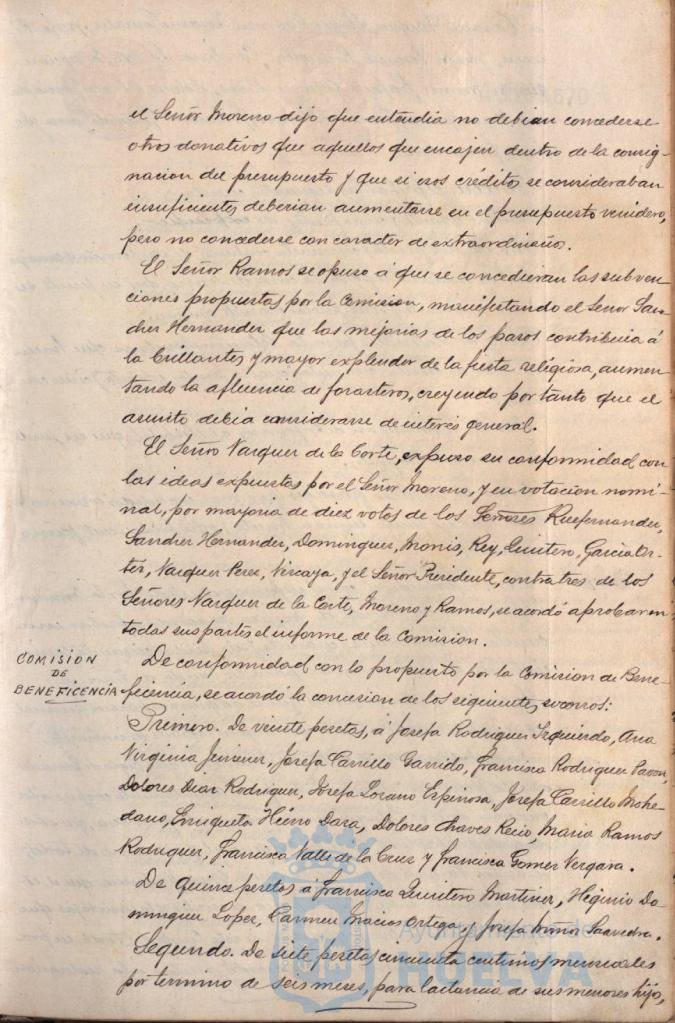 el Señor Moreno dijo que entendia no debian concederse
otros donativos que aquellos que encajen dentro de la consig-
nacion del presupuesto y que si esos créditos se consideraban
insuficientes deberian aumentarse en el presupuesto venidero,
pero no concederse con caracter de extraordinarios.
El Señor Ramos se opuso á que se concedieran las subven-
ciones propuestas por la Comision, manifestando el Señor San-
chez Hernandez que las mejorias de los pasos contribuia á
la brillantez y mayor explendor de la fiesta religiosa, aumen-
tando la afluencia de forasteros, creyendo por tanto que el
asunto debia considerarse de interés general.
El Señor Vazquez de la Corte, expuso su conformidad con
las ideas expuestas por el Señor Moreno, y en votacion nomi-
nal, por mayoria de diez votos de los Señores Ruifernandez,
Sanchez Hernandez, Dominguez, Monis, Rey, Quintero, Garcia Or-
tiz, Vazquez Perez, Vizcaya, y el Señor Presidente, contra tres de los
Señores Vazquez de la Corte, Moreno y Ramos, se acordó aprobar en
todas sus partes el informe de la Comision.
COMISION
DE
BENEFICENCIA
De conformidad con lo propuesto por la Comision de Bene-
ficencia, se acordó la concesion de los siguientes socorros:
Primero. De veinte pesetas, á Josefa Rodriguez Izquierdo, Ana
Virginia Jimenez, Josefa Carrillo Garrido, Francisca Rodriguez Pavon,
Dolores Diaz Rodriguez, Josefa Lozano Espinosa, Josefa Carrillo Mohe-
dano, Enriqueta Hierro Daza, Dolores Chaves Recio, Maria Ramos
Rodriguez, Francisca Valle de la Cruz y Francisca Gomez Vergara.
De quince pesetas á Francisca Quintero Martinez, Higinio Do-
minguez Lopez, Carmen Macias Ortega y Josefa Miñoz Saavedra.
Segundo. De siete pesetas cincuenta centimos mensuales
por termino de seis meses, para lactancia de sus menores hijos,
HUELVA